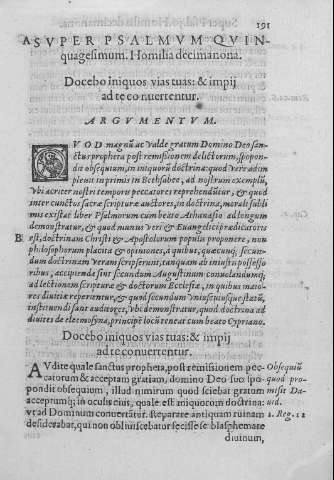 191
A SVPER PSALMVM QVIN-
quagesimum. Homilia decimanona.
Docebo iniquos vias tuas: & impij
ad te conuertentur.
ARGVMENTVM.
QVOD magnũ ac valde gratum Domino Deo san-
ctus propheta post remissionem delictorum, spopon-
dit obsequium, in iniquorũ doctrina: quod vere adim
pleuit in primis in Bethsabee, ad nostrum exemplũ,
Vbi acriter nostri temporis peccatores reprehendũtur, & quod
inter cunctos sacræ scripturæ auctores, in doctrina, morali subli
mis existat liber Psalmorum cum beato Athanasio ad longum
demonstratur, & quod munus veri & Euangelici prædicatoris
B est, doctrinam Christi & Apostolorum populis proponere, non
philosophorum placita & opiniones, à quibus, quæcunq; secun-
dum doctrinam veram scripserunt, tanquam ab iniustis possesso
ribus, accipienda sint secundum Augustinum conuolandumq;
ad lectionem scripturæ & doctorum Ecclesiæ, in quibus maio-
res diuitiæ reperientur, & quod secundum vniuscuiusque statũ,
instituendi sunt auditores, vbi demonstratur, quod doctrina ad
diuites de eleemosyna, principẽ locũ tenear cum beato Cypriano.
Docebo iniquos vias tuas: & impij
ad te conuertentur.
AVdite quale sanctus propheta, post remissionem pec- Obsequiũ
catorum & acceptam gratiam, domino Deo suo spo- quod pro-
pondit obsequium, illud nimirum quod sciebat gratum misit Da-
acceptumq; in oculis eius, quale est iniquorum doctrina: uid.
vt ad Dominum conuertãtur. Reparate antiquam ruinam 2. Reg. 12
desiderabat, qui non obliuiscebatur fecisse se blasphemare
diuinum,